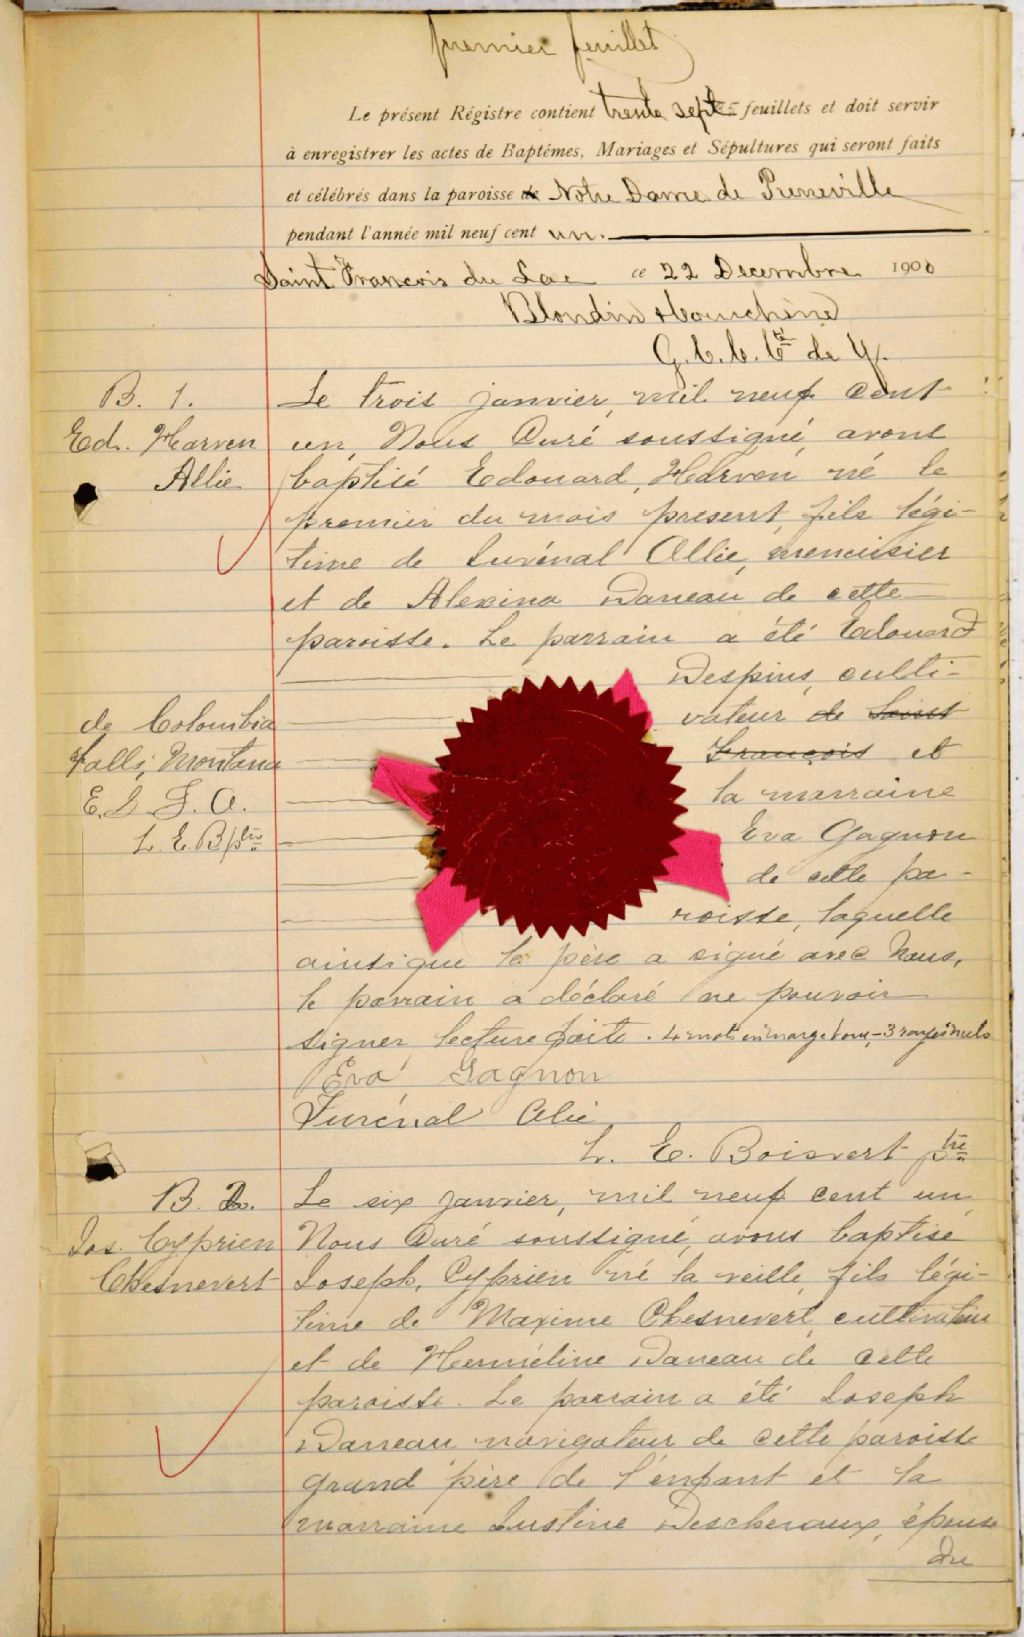 premier feuillet
Le présent Régistre contient trente sept feuillets et doit servir
à enregistrer les actes de Baptêmes, Mariages et Sépultures qui seront faits
et célébrés dans la paroisse de Notre Dame de Pierreville
pendant l'année mil neuf cent un.
Saint François du Lac ce 22 Decembre 1900
Blondin
G. C. C. de
B. 1.
Ed. Harven
Allie
Le trois janvier, mil neuf cent
un, Nous Curé soussigné, avons
baptisé Edouard, Harven né le
premier du mois présent, fils légi-
time de Juvénal Allie, menuisier
et de Alexina Daneau de cette
paroisse. Le parrain a été Edouard
Despins, culti-
vateur de Saint
François et
la marraine
Eva Gagnon
de cette pa-
roisse, laquelle
de Colombia
Falls, Montana
L. E. B ptre
ainsi que le père a signé avec Nous,
le parrain a déclaré ne pouvoir
signer lecture faite. 4 mots en marge bons - 3 rayés nuls
Eva Gagnon
Juvénal Alie
L. E. Boisvert ptre
B. 2.
Jos. Cyprien
Chesnevert
Le six janvier, mil neuf cent un,
Nous Curé soussigné, avons baptisé
Joseph, Cyprien né la veille, fils légi-
time de Maxime Chesnevert, cultivateur
et de Herméline Daneau de cette
paroisse. Le parrain a été Joseph
Daneau, navigateur de cette paroisse
grand père de l'enfant et la
marraine Justine Descheneaux, épouse
du